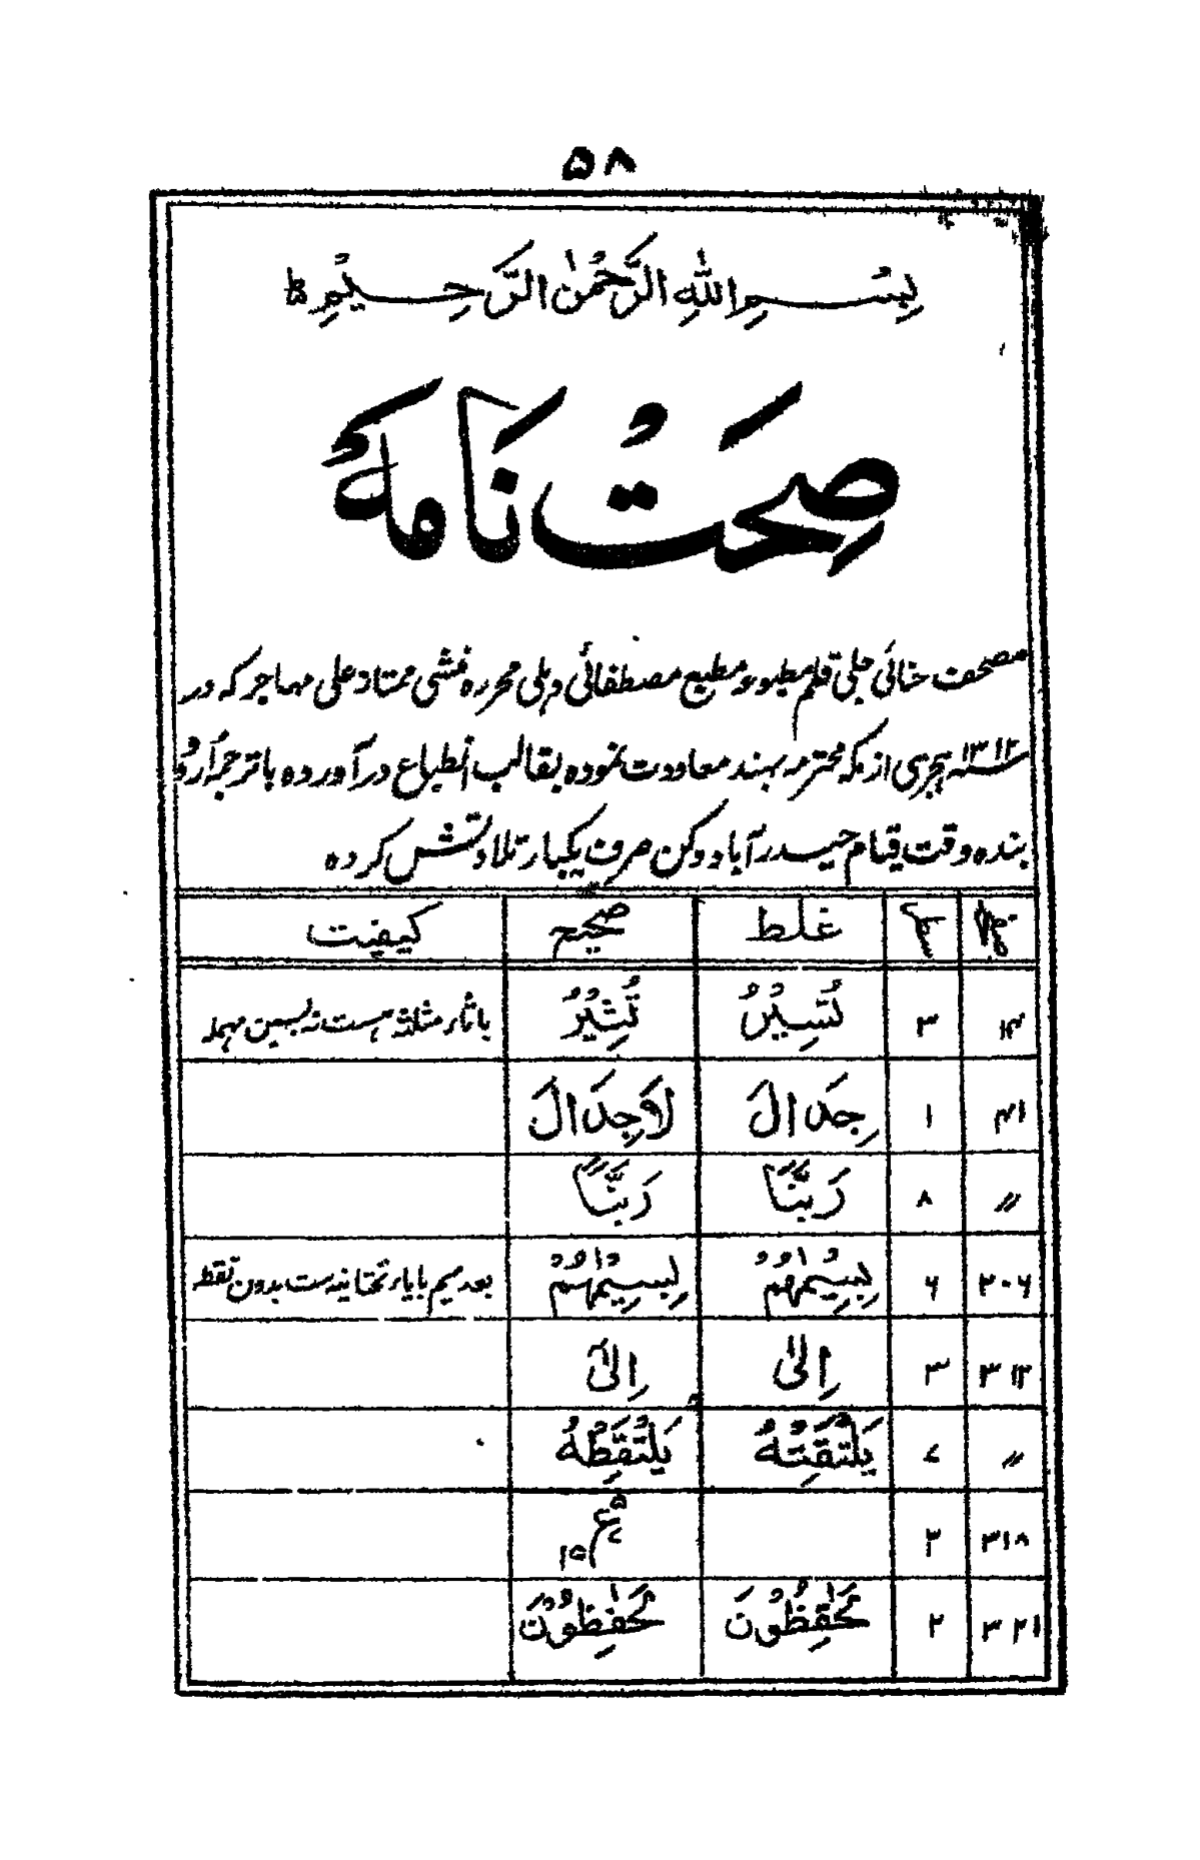 ۵۸
بِسْمِ اللّٰهِ الرَّحْمٰنِ الرَّحِيْمِ ط
صِحَتْ نَامَهْ
مصحف حنائی جلی قلم مطبوعہ مطبع مصطفائی دہلی محررہ منشی ممتاز علی مہاجر کہ در
سنہ ۱۳۱۲ ہجری از مکہ محترمہ بہند معاودت نمودہ بقالب انطباع در آوردہ با ترجمہ اردو
بندہ وقت قیام حیدر آباد دکن صرف یکبار تلاوتش کردہ
صفحہ سطر غلط صحیح کیفیت
۱۴ ۳ تُسِيْرُ تُثِيْرُ با ثاء مثلثہ ہست نہ بسین مہملہ
۴۱ ۱ جِدَالَ لَا جِدَالَ
〃 ۸ رَبَّنَا رَبَّنَا
۲۰۶ ۶ بِسِيْمٰهُمْ بِسِيْمٰهُمْ بعد میم با یاء تحتانیہ ست بدون نقط
۳۱۲ ۳ اِلٰى اِلٰٓى
〃 ۷ يَلْتَقِتْهُ يَلْتَقِطْهُ
۳۱۸ ۲ ع
۳۲۱ ۲ لَحٰفِظُوْنَ لَحٰفِظُوْنَ